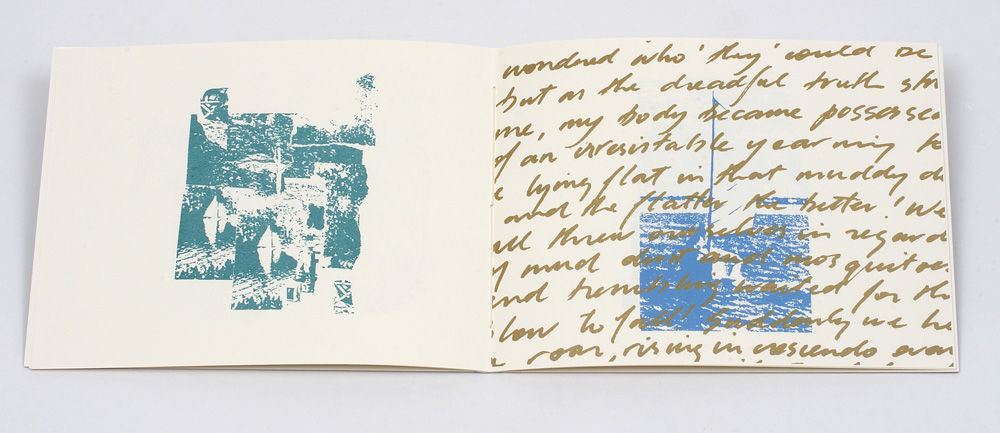 wondered who 'they' could be
but as the dreadful truth str
me, my body became possessed
of an irresistable yearning to
lying flat in that muddy di
and the flatter the better! We
all threw ourselves in regard
mud dust and mosquitoes
and trembling waited for th
blow to fall! Suddenly we he
roar, rising in crescendo over